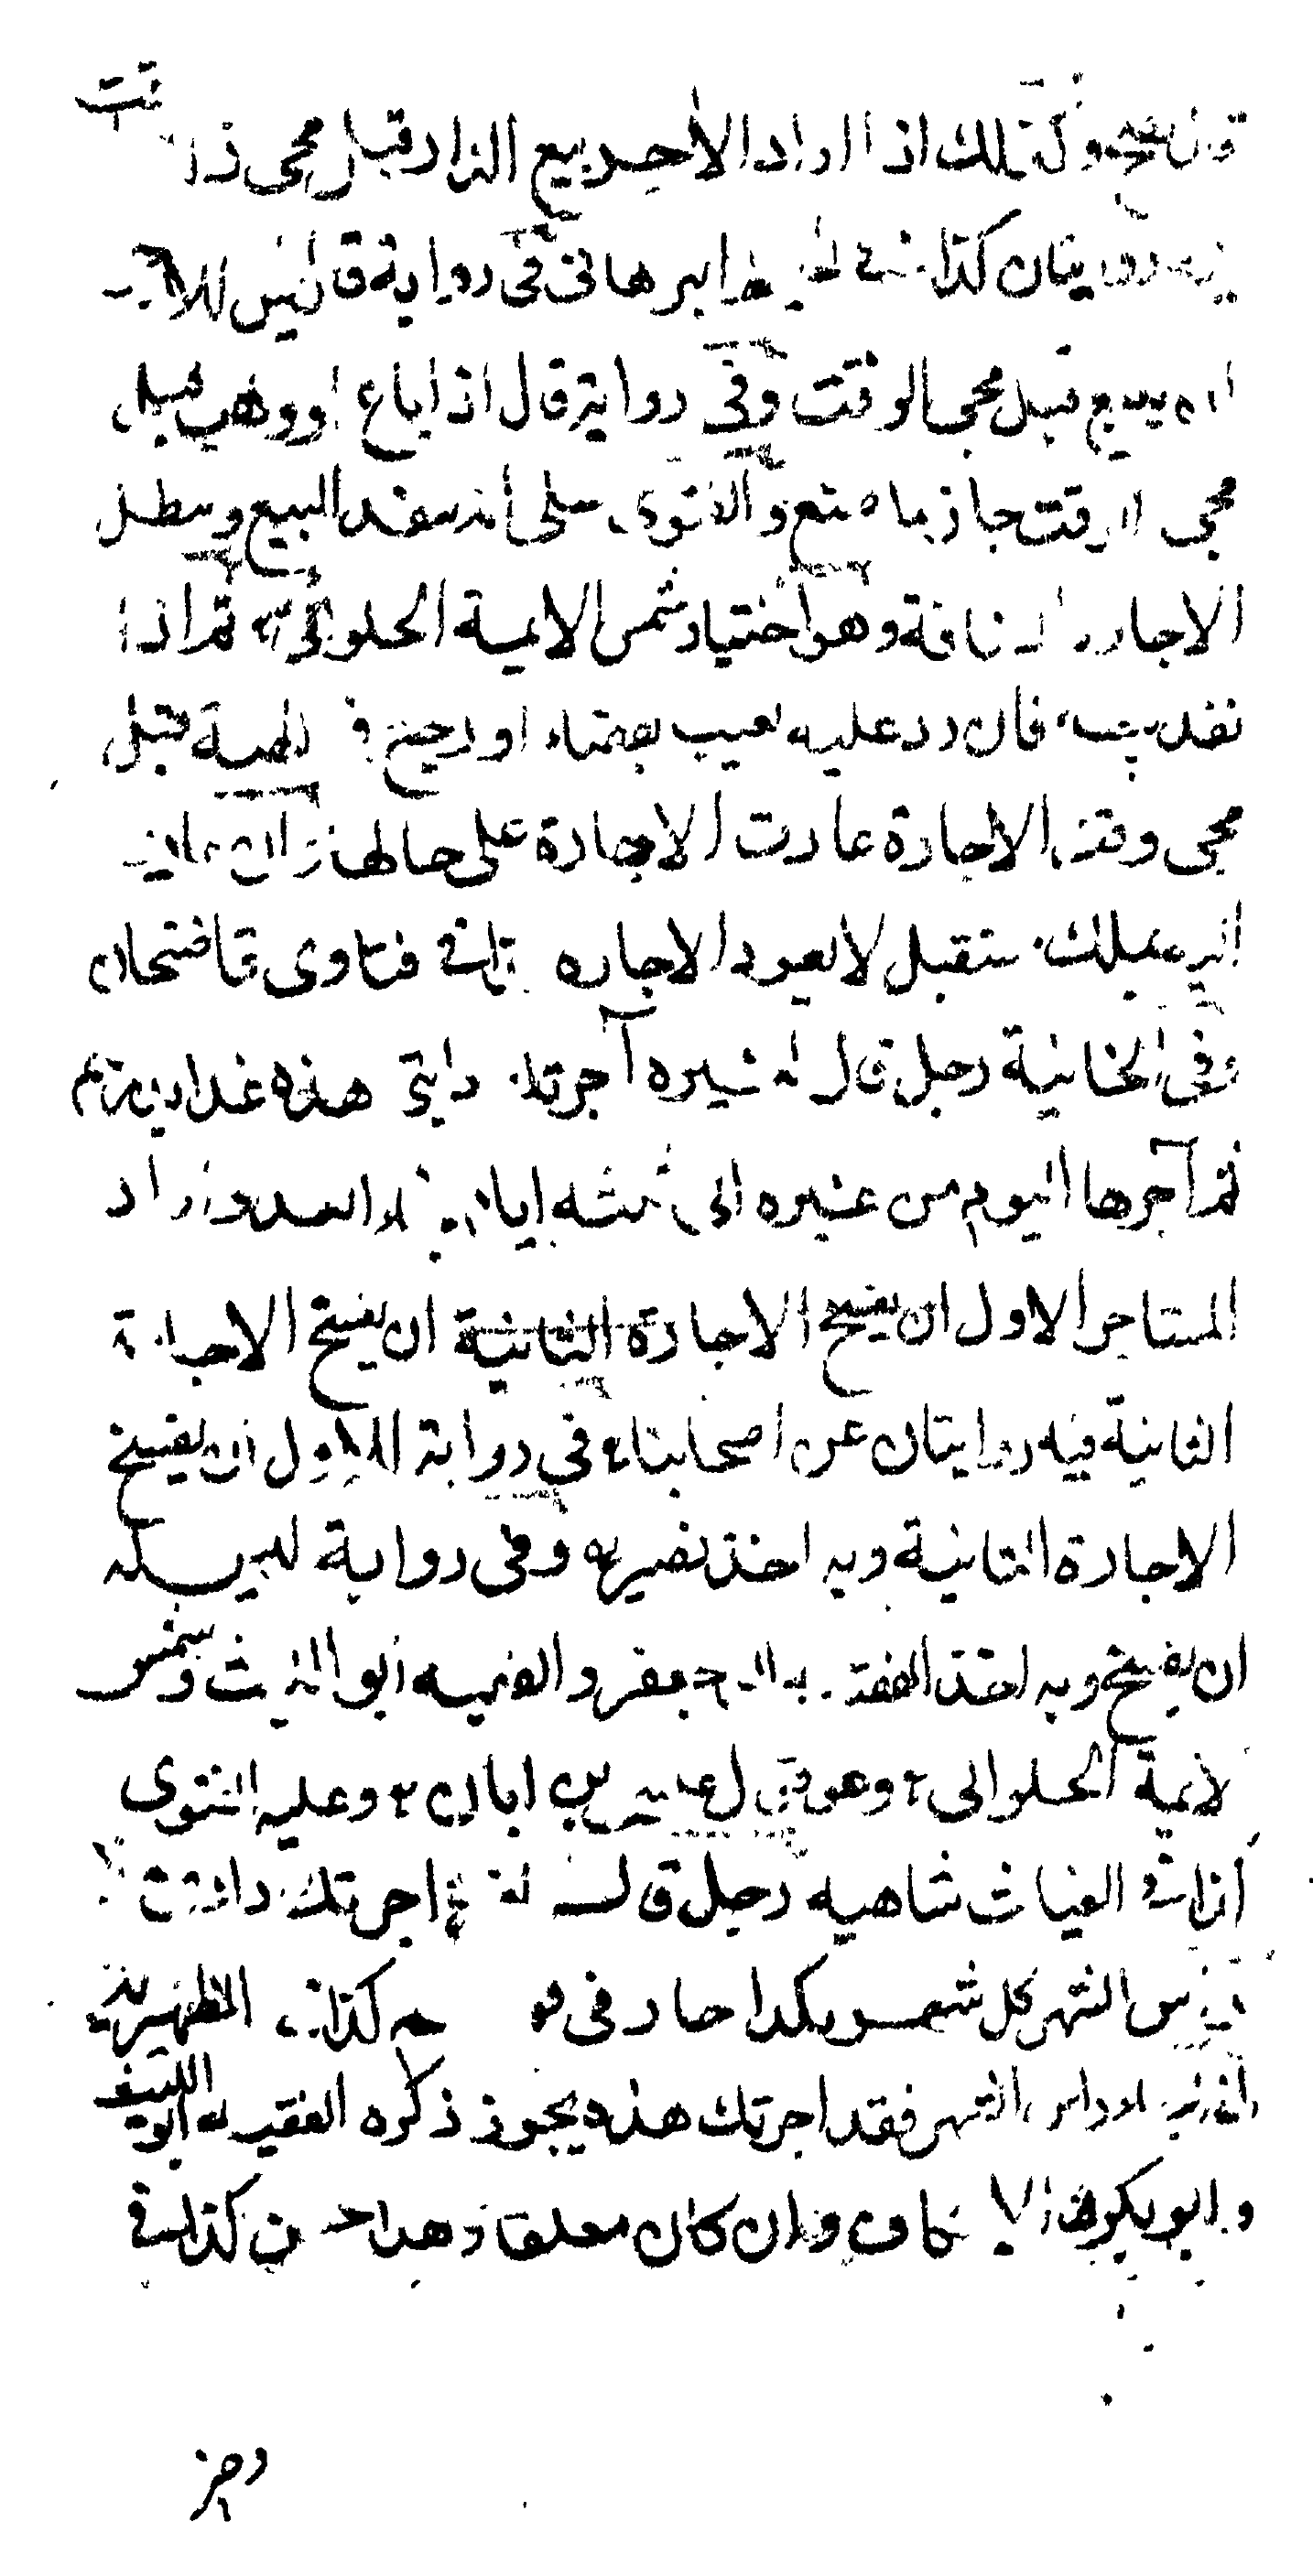 وكذلك اذا اراد الاجر بيع الدار قبل مجى ذلك الوقت
روايتان كذا فى البرهانى فى رواية قال ليس للاجر
ان يبيع قبل مجى الوقت وفى رواية قال اذا باع او وهب قبل
مجى الوقت جاز ما صنع والفتوى على انه ينفذ البيع ويبطل
الاجارة المضافة وهو اختيار شمس الايمة الحلوانى ثم اذا
نفذ بيعه فان رد عليه بعيب بقضاء او رجع فى الهبة قبل
مجى وقت الاجارة عادت الاجارة على حالها وان عاد
اليه بملك مستقبل لا يعود الاجاره كذا فى فتاوى قاضيخان
وفى الخانية رجل قال لغيره آجرتك دابتى هذه غدا بدرهم
ثم آجرها اليوم من غيره الى ثلثه ايام فجاء الغد واراد
المستاجر الاول ان يفسخ الاجارة الثانية ان يفسخ الاجارة
الثانية فيه روايتان عن اصحابنا فى رواية للاول ان يفسخ
الاجارة الثانية وبه اخذ نصير وفى رواية ليس له
ان يفسخ وبه اخذ الفقيه ابو جعفر والفقيه ابو الليث وشمس
لايمة الحلوانى وهو قول عيسى بن ابان وعليه الفتوى
العياث شاهيه رجل قال لغيره اجرتك دابتى
راس الشهر كل شهر بكذا جاز فى كذا فى الظهيرية
اذا جاء راس الشهر فقد اجرتك هذه يجوز ذكره الفقيه ابو الليث
وابو بكر الاسكاف وان كان معلقا وهذا حسن كذا فى